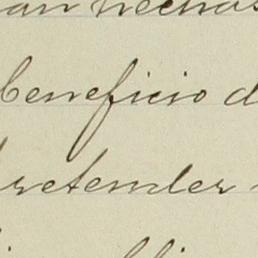 an hechas
beneficio d
retender